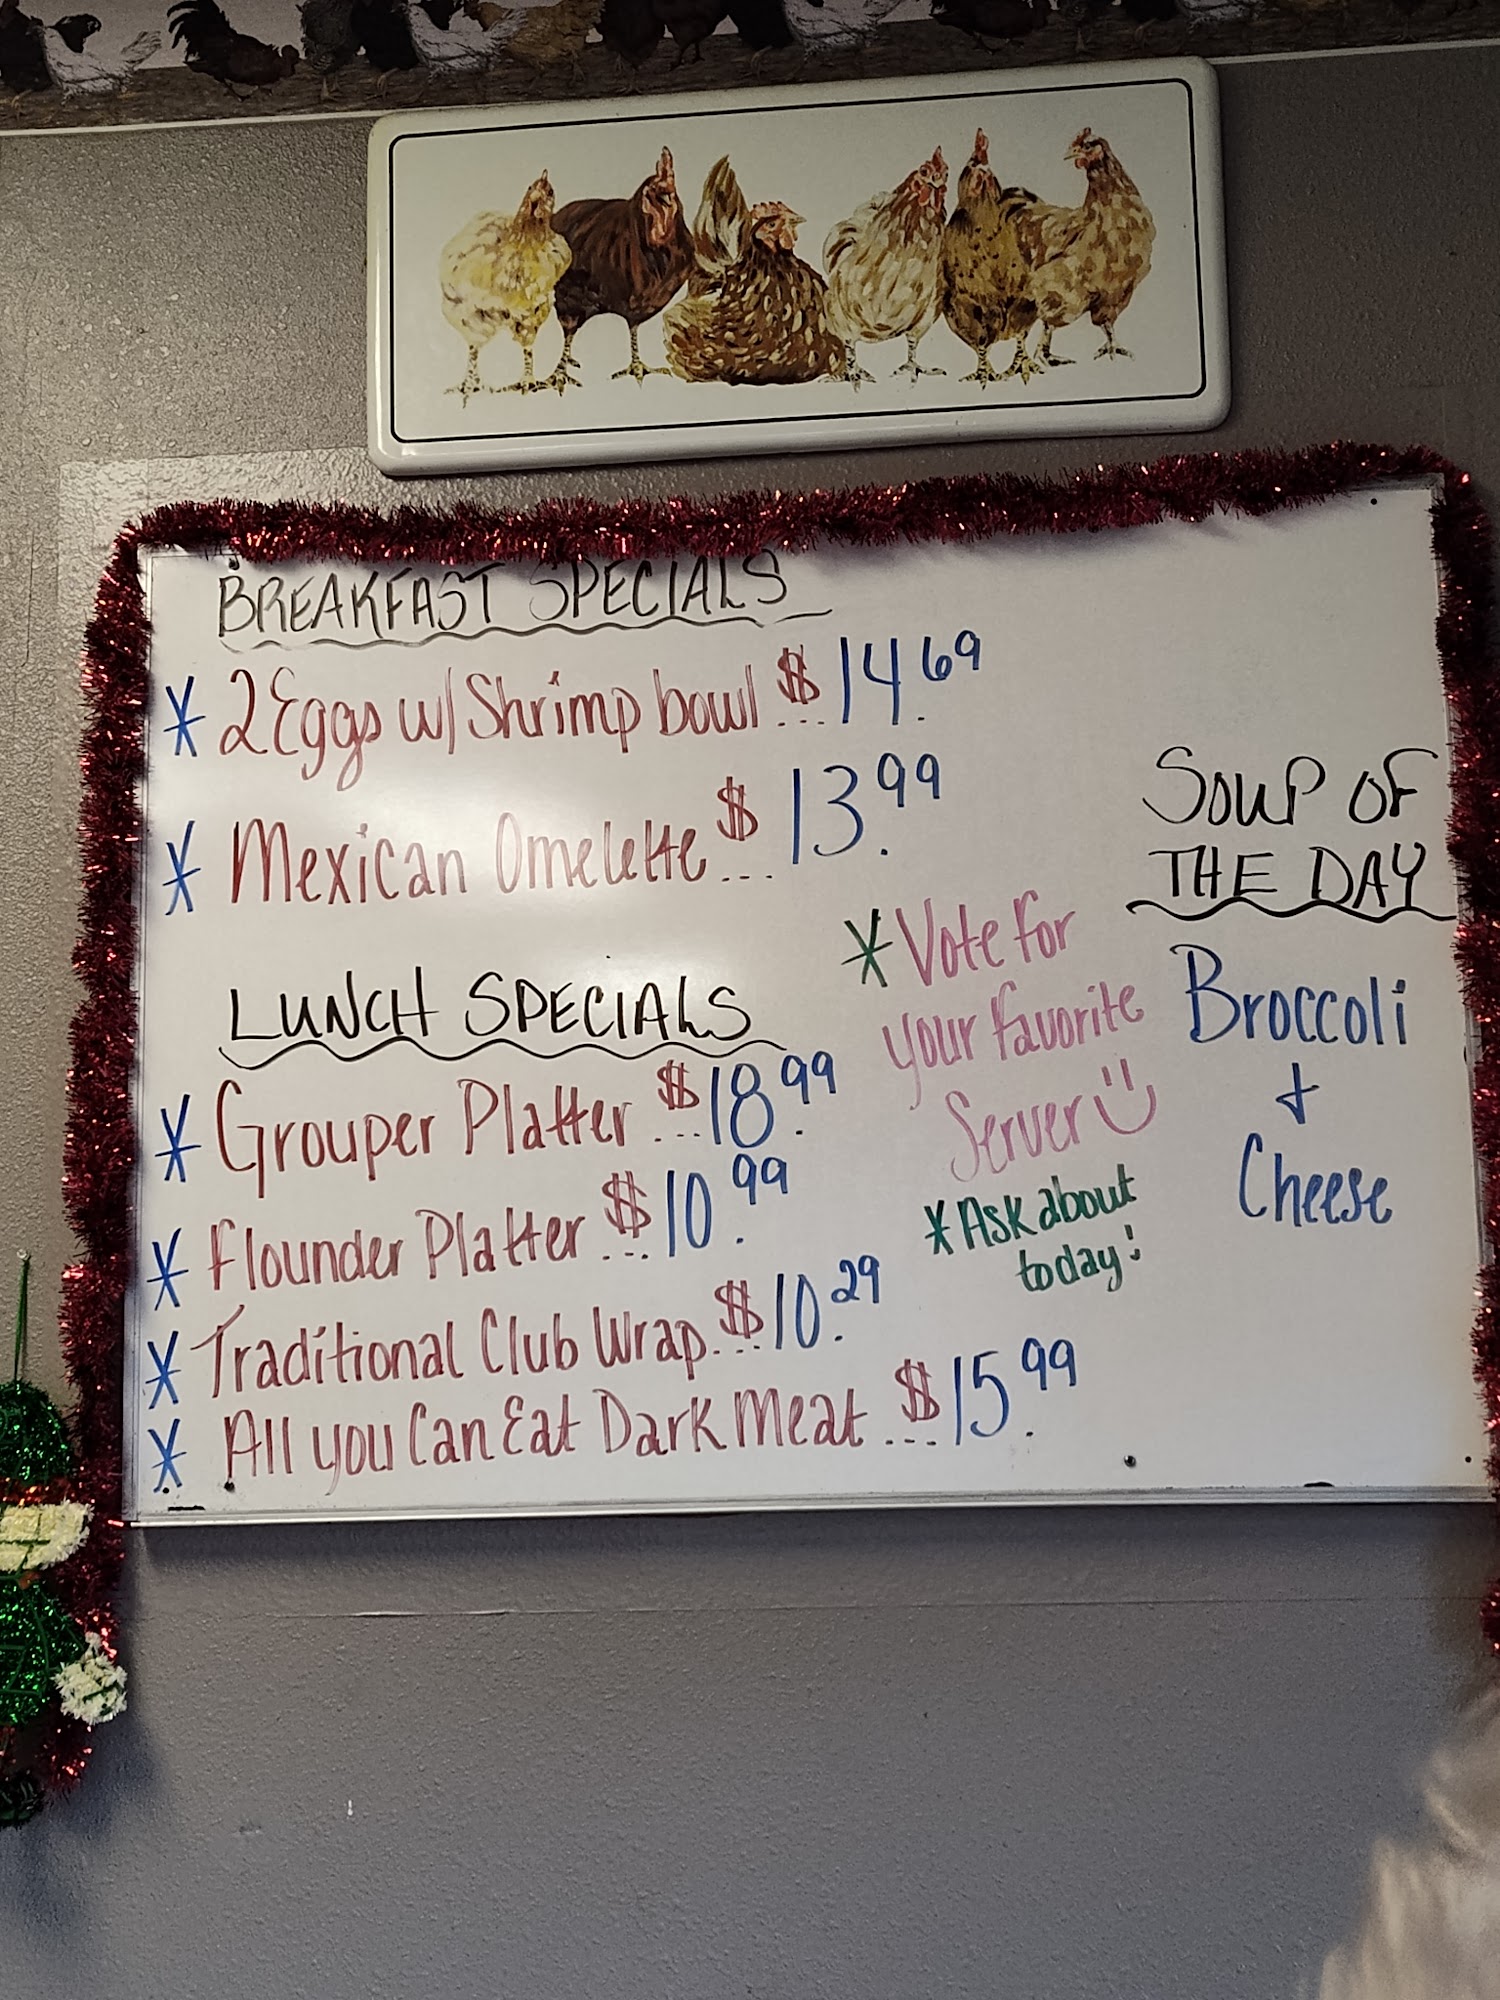 BREAKFAST SPECIALS
* 2 Eggs w/ Shrimp bowl ... $14.69
* Mexican Omelette ... $13.99
LUNCH SPECIALS
* Grouper Platter ... $18.99
* Flounder Platter ... $10.99
* Traditional Club Wrap ... $10.29
* All you Can Eat Dark Meat ... $15.99
* Vote for
your favorite
Server
* Ask about
today!
SOUP OF
THE DAY
Broccoli
+
Cheese